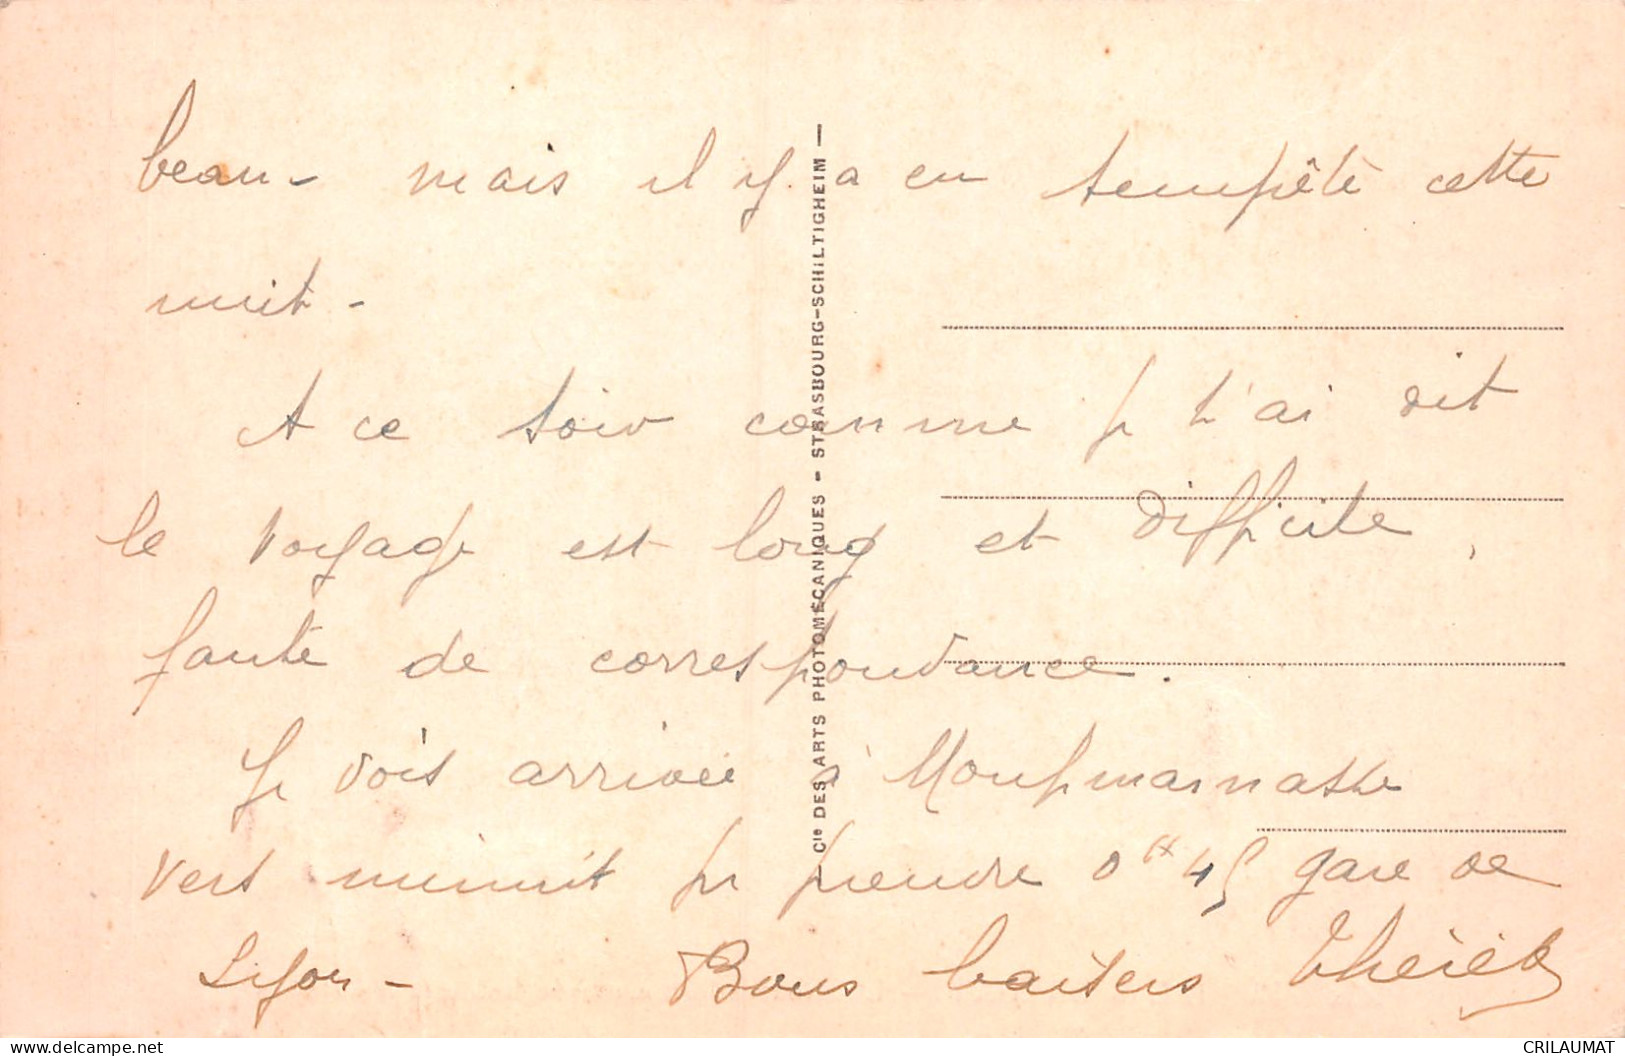 beau - mais il y a eu tempête cette
nuit -
A ce soir comme je t'ai dit
le voyage est long et difficile,
faute de correspondance.
Je dois arriver à Montparnasse
vers minuit pr prendre 0h 45 gare de
Lyon - Bons baisers
Cie DES ARTS PHOTOMÉCANIQUES - STRASBOURG-SCHILTIGHEIM —
CRILAUMAT